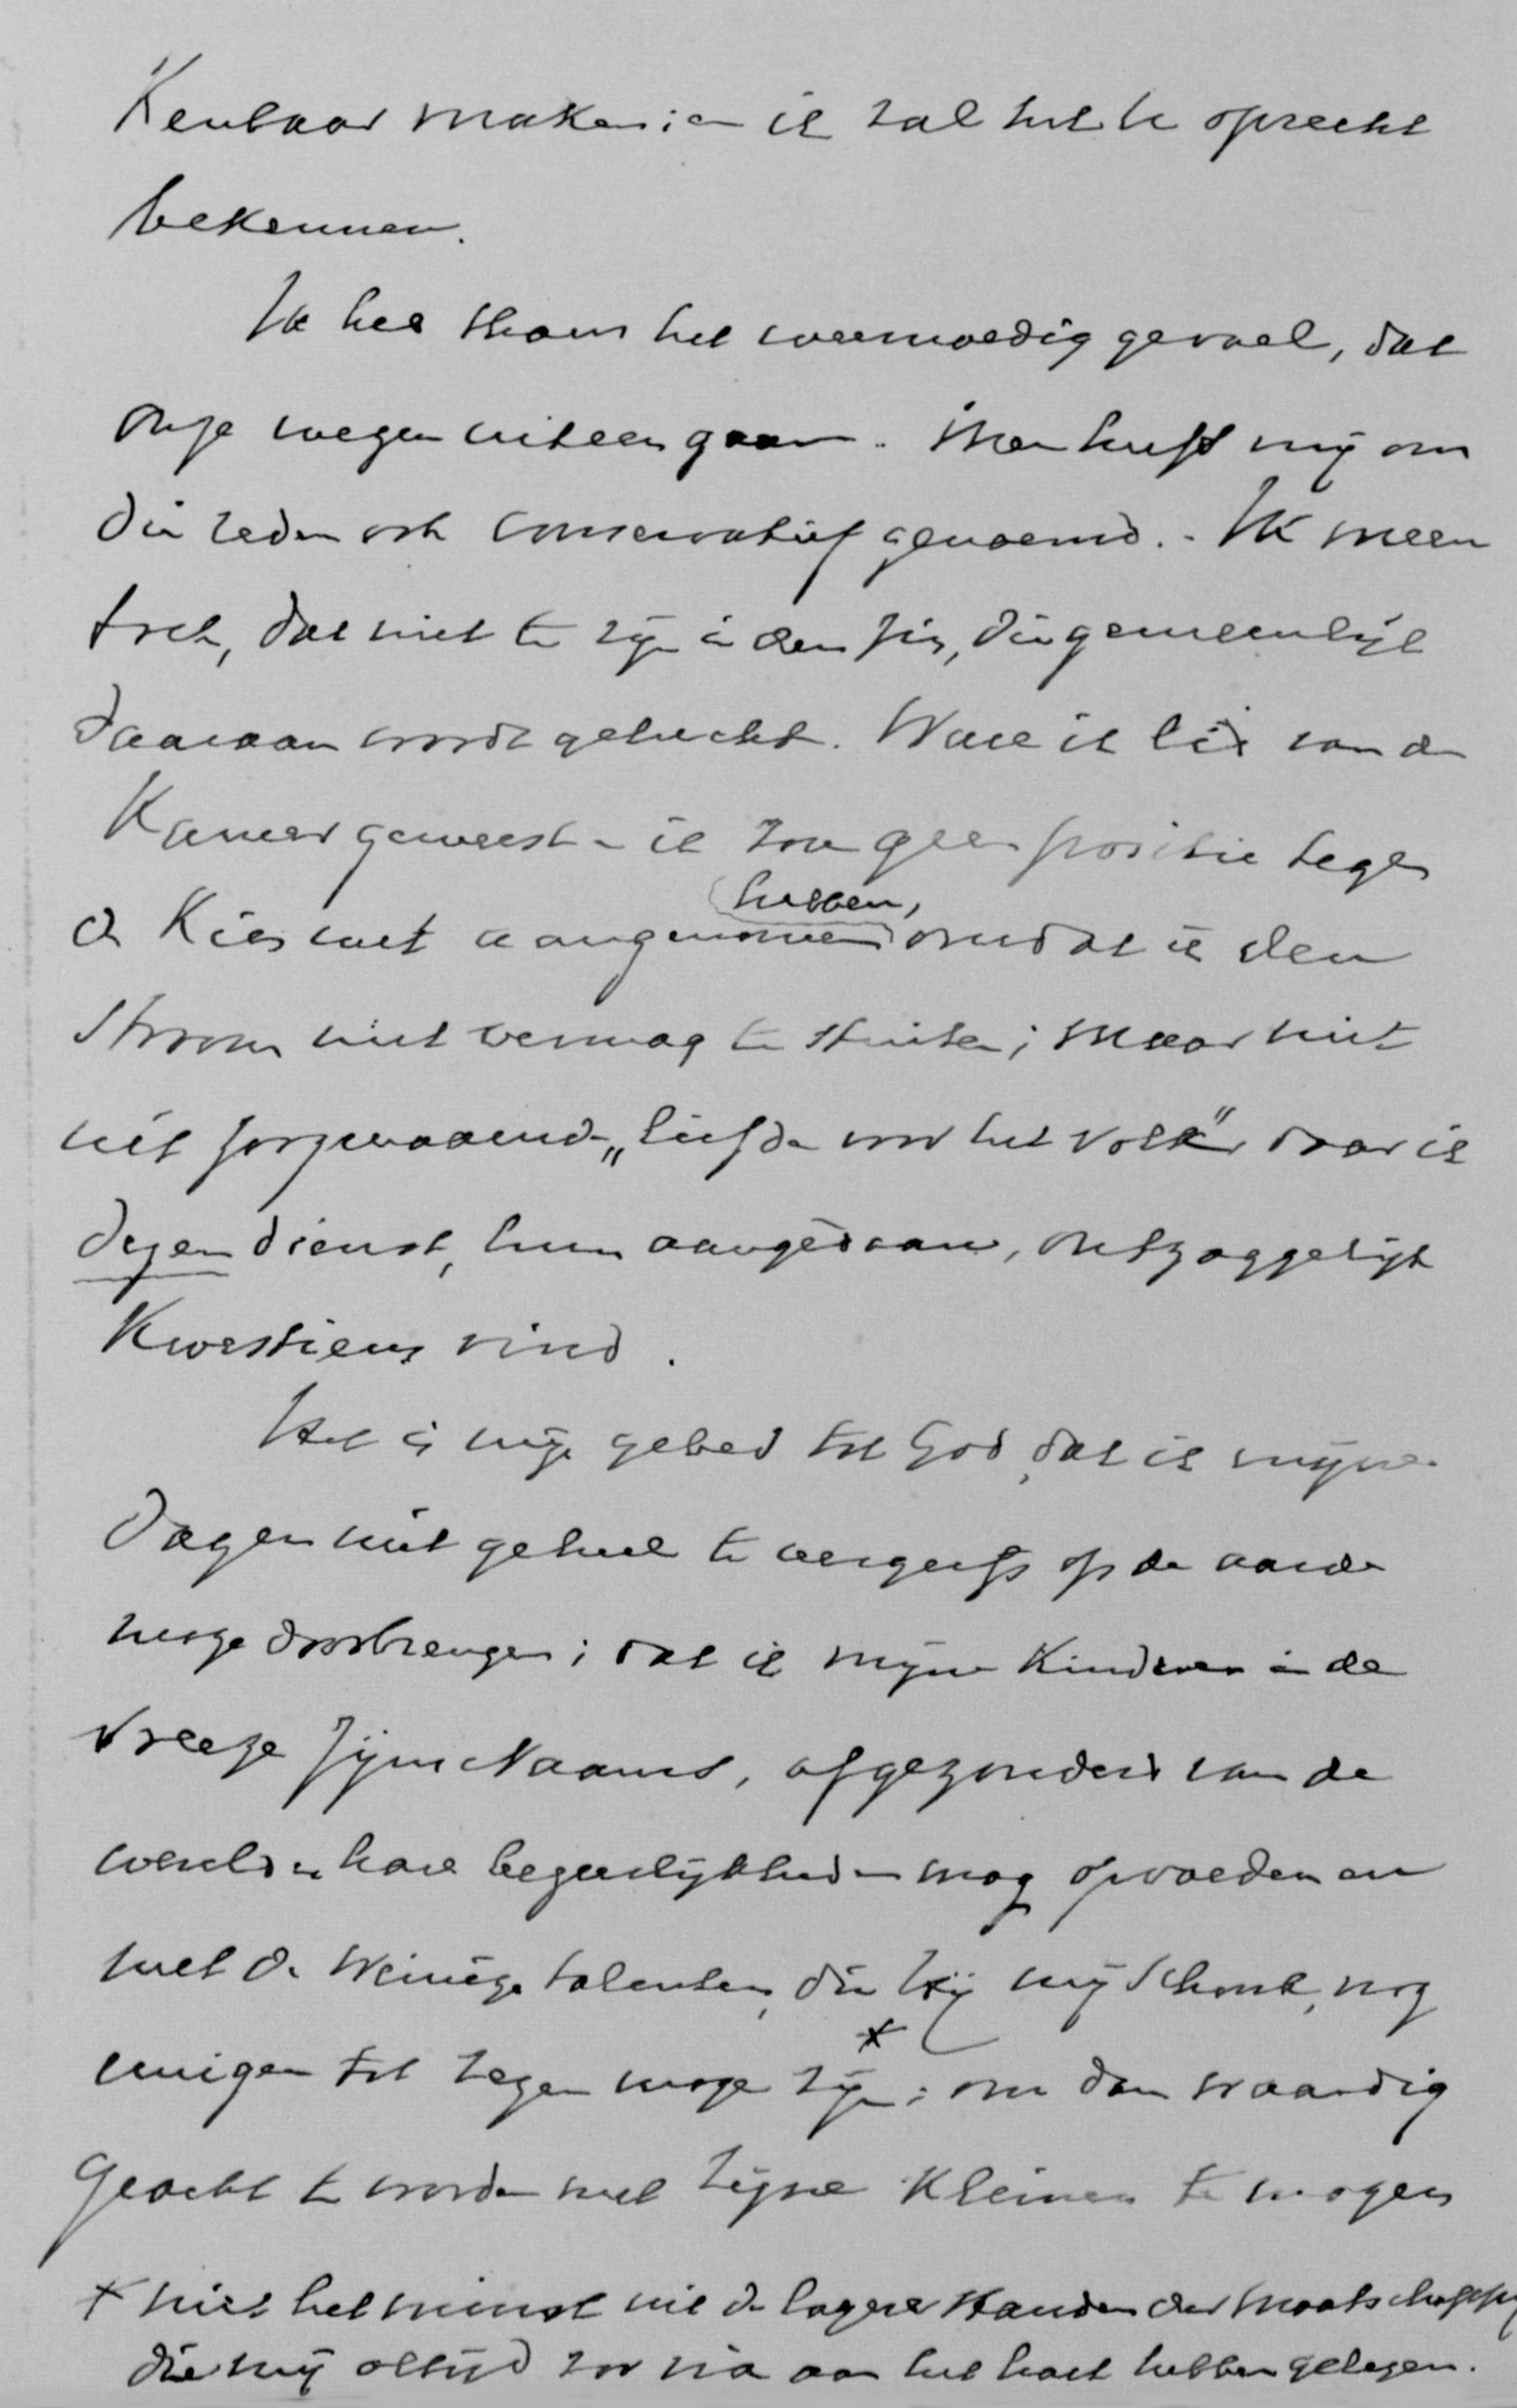 Kenbaar maken; en ik zal het U oprecht
bekennen.
Ik heb thans het weemoedig gevoel, dat
onze wegen uiteen gaan. Men heeft mij om
die reden ook conservatief genoemd. - Ik meen
toch, dat niet te zijn in den zin, die gemeenlijk
daaraan wordt gehecht. Ware ik lid van de
Kamer geweest - ik zou geen positie tegen
de Kieswet aangenomen hebben, omdat ik den
stroom niet vermag te stuiten; maar niet
uit zorgenaamde „liefde voor het volk" daar ik
dezen dienst, hun aangedaan, ontzaggelijk
Kwestieus vind.
Het is mijn gebed tot God, dat ik mijne
dagen niet geheel te vergeefs op de aarde
moge doorbrengen; dat ik mijne Kinderen in de
vreeze Zijns Naams, afgezonderd van de
wereld en hare begeerlijkheden mag opvoeden en
met de weinige talenten, die Hij mij schonk, nog
eenigen tot zegen moge zijn *; om dan waardig
geacht te worden met Zijne Kleinen te mogen
* niet het minst uit de lagere standen der Maatschappij
die mij altijd zoo na aan het hart hebben gelegen.